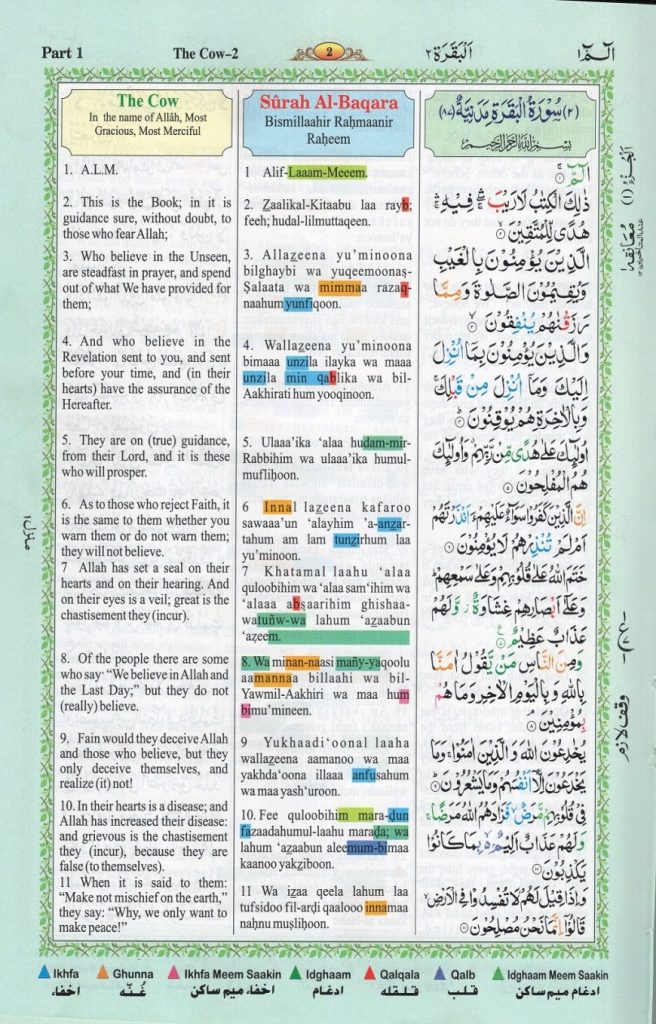 Part 1
The Cow–2
2
اَلْبَقَرَة ٢
الٓمّٓ ١
The Cow
In the name of Allâh, Most
Gracious, Most Merciful
1. A.L.M.
2. This is the Book; in it is
guidance sure, without doubt, to
those who fear Allah;
3. Who believe in the Unseen,
are steadfast in prayer, and spend
out of what We have provided for
them;
4. And who believe in the
Revelation sent to you, and sent
before your time, and (in their
hearts) have the assurance of the
Hereafter.
5. They are on (true) guidance,
from their Lord, and it is these
who will prosper.
6. As to those who reject Faith, it
is the same to them whether you
warn them or do not warn them;
they will not believe.
7 Allah has set a seal on their
hearts and on their hearing. And
on their eyes is a veil; great is the
chastisement they (incur).
8. Of the people there are some
who say: “We believe in Allah and
the Last Day;” but they do not
(really) believe.
9. Fain would they deceive Allah
and those who believe, but they
only deceive themselves, and
realize (it) not!
10. In their hearts is a disease; and
Allah has increased their disease:
and grievous is the chastisement
they (incur), because they are
false (to themselves).
11 When it is said to them:
“Make not mischief on the earth,”
they say: “Why, we only want to
make peace!”
Sûrah Al-Baqara
Bismillaahir Raḥmaanir
Raḥeem
1 Alif-Laaam-Meeem.
2. Z̲aalikal-Kitaabu laa rayb;
feeh; hudal-lilmuttaqeen.
3. Allazeena yu’minoona
bilghaybi wa yuqeemoonaṣ-
Ṣalaata wa mimmaa razaq-
naahum yunfiqoon.
4. Wallazeena yu’minoona
bimaaa unzila ilayka wa maaa
unzila min qablika wa bil-
Aakhirati hum yooqinoon.
5. Ulaaa’ika ‘alaa hudam-mir-
Rabbihim wa ulaaa’ika humul-
mufliḥoon.
6 Innal lazeena kafaroo
sawaaa’un ‘alayhim ’a-anzar-
tahum am lam tunzirhum laa
yu’minoon.
7 Khatamal laahu ‘alaa
quloobihim wa ‘alaa sam‘ihim wa
‘alaaa abṣaarihim ghishaa-
watuñw-wa lahum ‘aẓaabun
‘azeem.
8. Wa minan-naasi mañy-yaqoolu
aamannaa billaahi wa bil-
Yawmil-Aakhiri wa maa hum
bimu’mineen.
9 Yukhaadi‘oonal laaha
wallazeena aamanoo wa maa
yakhda‘oona illaaa anfusahum
wa maa yash‘uroon.
10. Fee quloobihim mara-ḍun
fazaadahumul-laahu maraḍa; wa
lahum ‘aẓaabun aleemum-bimaa
kaanoo yakẓiboon.
11 Wa iẓaa qeela lahum laa
tufsidoo fil-arḍi qaalooo innamaa
naḥnu muṣliḥoon.
(٢) سُوْرَةُ الْبَقَرَةِ مَدَنِيَّةٌ (٨٧)
بِسْمِ اللّٰهِ الرَّحْمٰنِ الرَّحِيْمِ
الٓمّٓ ۝١
ذٰلِكَ الْكِتٰبُ لَا رَيْبَ ۛ فِيْهِ ۛ
هُدًى لِّلْمُتَّقِيْنَ ۝٢
الَّذِيْنَ يُؤْمِنُوْنَ بِالْغَيْبِ
وَيُقِيْمُوْنَ الصَّلٰوةَ وَمِمَّا
رَزَقْنٰهُمْ يُنْفِقُوْنَ ۝٣
وَالَّذِيْنَ يُؤْمِنُوْنَ بِمَآ اُنْزِلَ
اِلَيْكَ وَمَآ اُنْزِلَ مِنْ قَبْلِكَ ۚ
وَبِالْاٰخِرَةِ هُمْ يُوْقِنُوْنَ ۝٤
اُولٰٓئِكَ عَلٰى هُدًى مِّنْ رَّبِّهِمْ ۗ وَاُولٰٓئِكَ
هُمُ الْمُفْلِحُوْنَ ۝٥
اِنَّ الَّذِيْنَ كَفَرُوْا سَوَآءٌ عَلَيْهِمْ ءَاَنْذَرْتَهُمْ
اَمْ لَمْ تُنْذِرْهُمْ لَا يُؤْمِنُوْنَ ۝٦
خَتَمَ اللّٰهُ عَلٰى قُلُوْبِهِمْ وَعَلٰى سَمْعِهِمْ ؕ
وَعَلٰٓى اَبْصَارِهِمْ غِشَاوَةٌ ؗ وَّلَهُمْ
عَذَابٌ عَظِيْمٌ ۝٧
وَمِنَ النَّاسِ مَنْ يَّقُوْلُ اٰمَنَّا
بِاللّٰهِ وَبِالْيَوْمِ الْاٰخِرِ وَمَا هُمْ
بِمُؤْمِنِيْنَ ۝٨
يُخٰدِعُوْنَ اللّٰهَ وَالَّذِيْنَ اٰمَنُوْا ۚ وَمَا
يَخْدَعُوْنَ اِلَّآ اَنْفُسَهُمْ وَمَا يَشْعُرُوْنَ ۝٩
فِيْ قُلُوْبِهِمْ مَّرَضٌ ۙ فَزَادَهُمُ اللّٰهُ مَرَضًا ۚ
وَلَهُمْ عَذَابٌ اَلِيْمٌ ۢ بِمَا كَانُوْا
يَكْذِبُوْنَ ۝١٠
وَاِذَا قِيْلَ لَهُمْ لَا تُفْسِدُوْا فِى الْاَرْضِ ۙ
قَالُوْٓا اِنَّمَا نَحْنُ مُصْلِحُوْنَ ۝١١
اَلْجُزْءُ (١)
معانقة
وقف لازم
منزل ١
Ikhfa
Ghunna
Ikhfa Meem Saakin
Idghaam
Qalqala
Qalb
Idghaam Meem Saakin
اخفاء
غُنّه
اخفاء میم ساکن
ادغام
قلقله
قلب
ادغام میم ساکن